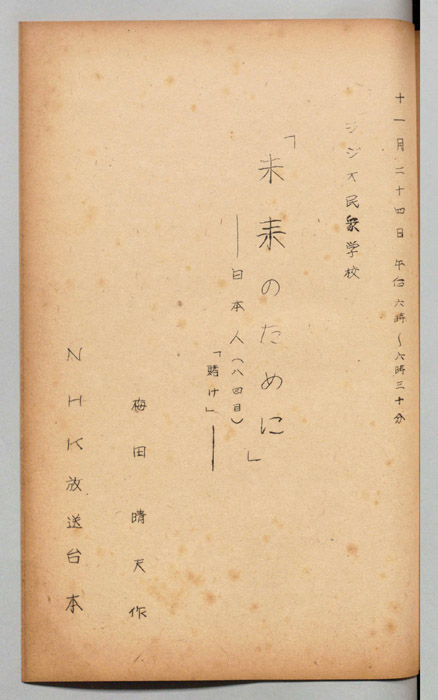 十一月二十四日 午后六時〜六時三十分
ラジオ民衆学校
「未来のために」
―日本人(八回目)
「賭け」―
梅田晴夫作
NHK放送台本